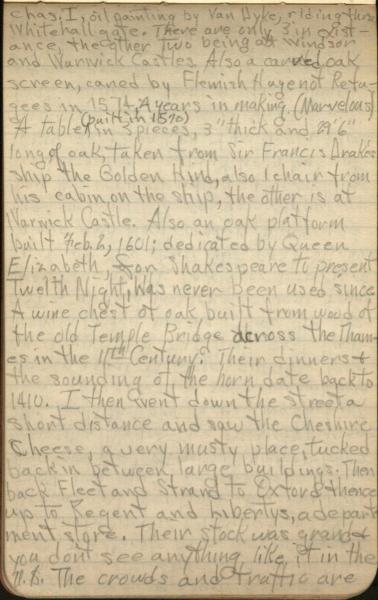 Chas. I, oil painting by Van Dyke, riding thru
Whitehall gate. There are only 3 in exist-
ance, the other two being at Windsor
and Warwick Castles. Also a carved oak
screen, caned by Flemish Hugenot Refu-
gees in 1574, 4 years in making. (Marvelous)
A table (built in 1570) in 3 pieces, 3" thick and 29'6"
long of oak, taken from Sir Francis Drake's
ship the Golden Hind, also 1 chair from
his cabin, on the ship, the other is at
Warwick Castle. Also an oak platform
built Feb. 2, 1601; dedicated by Queen
Elizabeth, for Shakespeare to present
Twelth Night, Has never been used since
A wine chest of oak, built from wood of
the old Temple Bridge across the Tham-
es in the 11th Century. Their dinners &
the sounding of the horn date back to
1410. I then went down the street a
short distance and saw the Cheshire
Cheese, a very musty place, tucked
back in between large buildings. Then
back Fleet and Strand to Oxford thence
up to Regent and Libertys, a depart
ment store. Their stock was grand &
you don't see anything like it in the
U.S. The crowds and traffic are